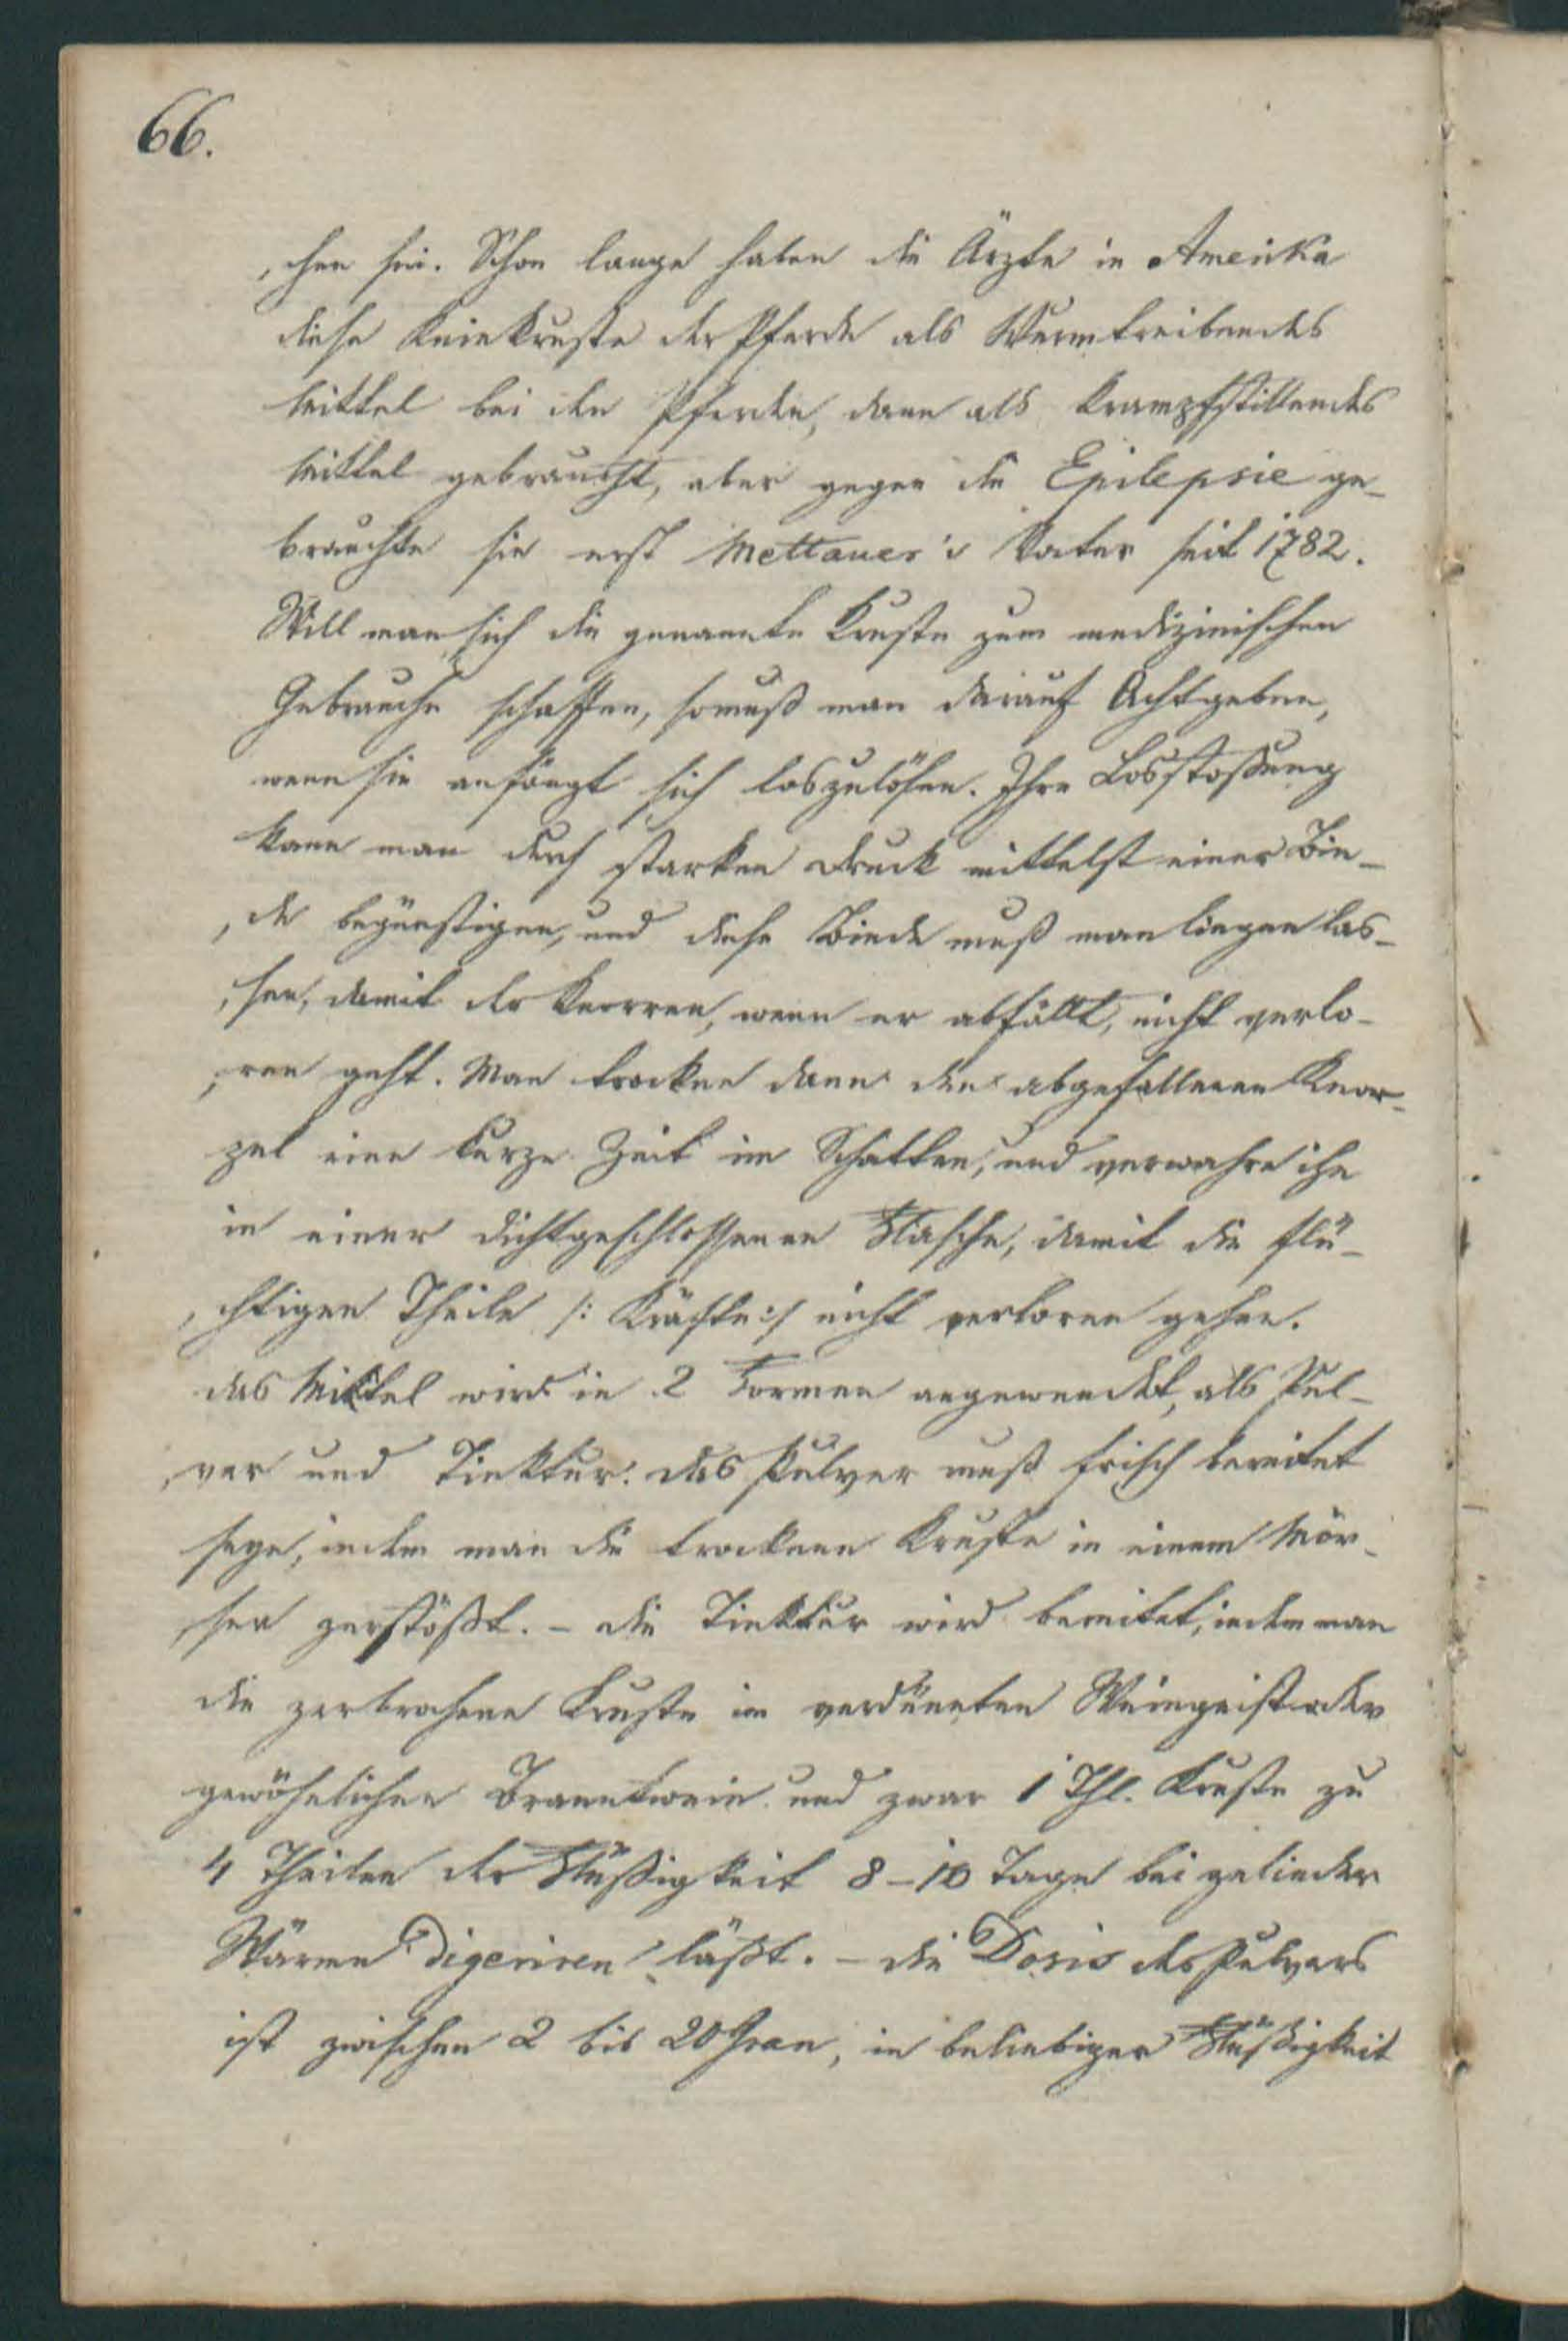 66.
, chen sei. Schon lange haben die Ärzte in Amerika
diese Kniekruste der Pferde als Wurmtreibendes
Mittel bei den Pferden, dann als krampfstillendes
Mittel gebraucht, aber gegen die Epilepsie ge-
brauchte sie erst Mettauer's Vater seit 1782.
Will man sich die genannte Kruste zum medizinischen
Gebrauche schaffen, so muß man darauf Acht geben,
wenn sie anfängt sich loszulösen. Ihre Losstoßung
kann man durch starken Druck mittelst einer Bin-
, de begünstigen, und diese Binde muß man liegen las-
, sen, damit der Knorren, wenn er abfällt, nicht verlo-
, ren geht. Man trockne dann den abgefallenen Knor-
zel eine kurze Zeit im Schatten, und verwahre ihn
in einer dichtgeschlossenen Flasche, damit die flü-
, chtigen Theile /: Kräfte :/ nicht verloren gehen.
das Mittel wird in 2 Formen angewendet, als Pul-
, ver und Tinktur. das Pulver muß frisch bereitet
seyn, indem man die trockene Kruste in einem Mör-
, ser zerstößt. - die Tinktur wird bereitet, indem man
die zerbrochene Kruste in verdünnten Weingeist oder
gewöhnlichen Branntwein und zwar 1 Thl. Kruste zu
4 Theilen der Flüßigkeit 8-10 Tage bei gelinder
Wärme digeriren läßt. - die Dosis des Pulvers
ist zwischen 2 bis 20 Gran, in beliebiger Flüßigkeit